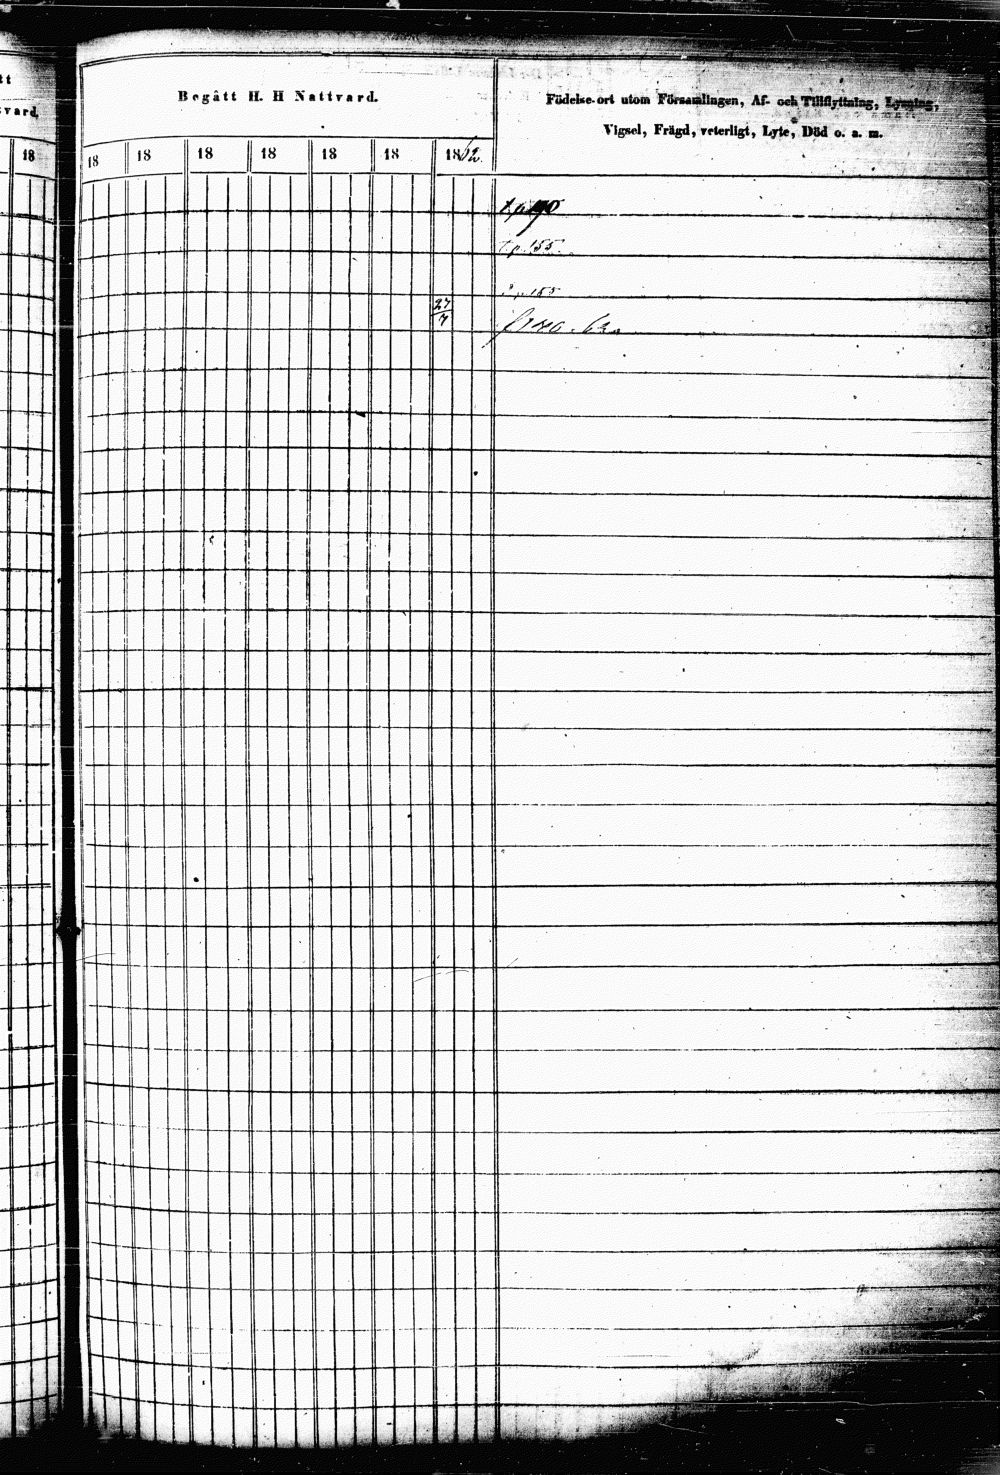 tt
Begått H. H Nattvard.
Födelse-ort utom Församlingen, Af- och Tillflyttning, Lysning,
vard.
Vigsel, Frägd, veterligt, Lyte, Död o. a. m.
18 18 18 18 18 18 18 1862.
t. p. 155.
p. 155
27/7